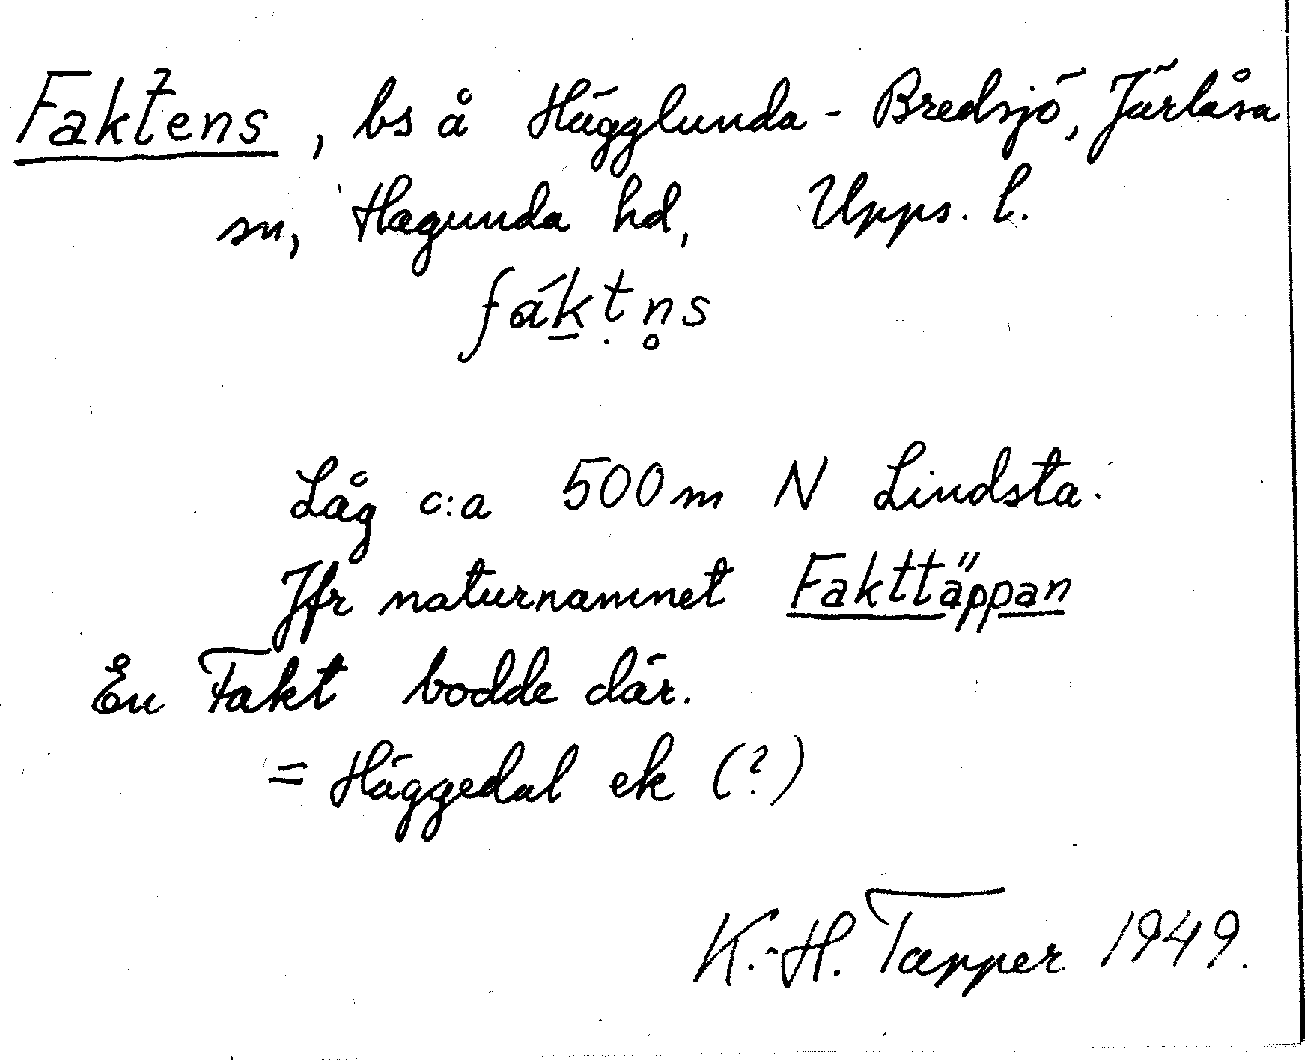 Faktens, bs å Hägglunda-Bredsjö, Järlåsa
sn, Hagunda hd, Upps. l.
fák̲tṇ̊s
Låg c:a 500 m N Lindsta.
Jfr naturnamnet Fakttäppan
En Fakt bodde där.
= Häggedal ek (?)
K.-H. Tapper 1949.